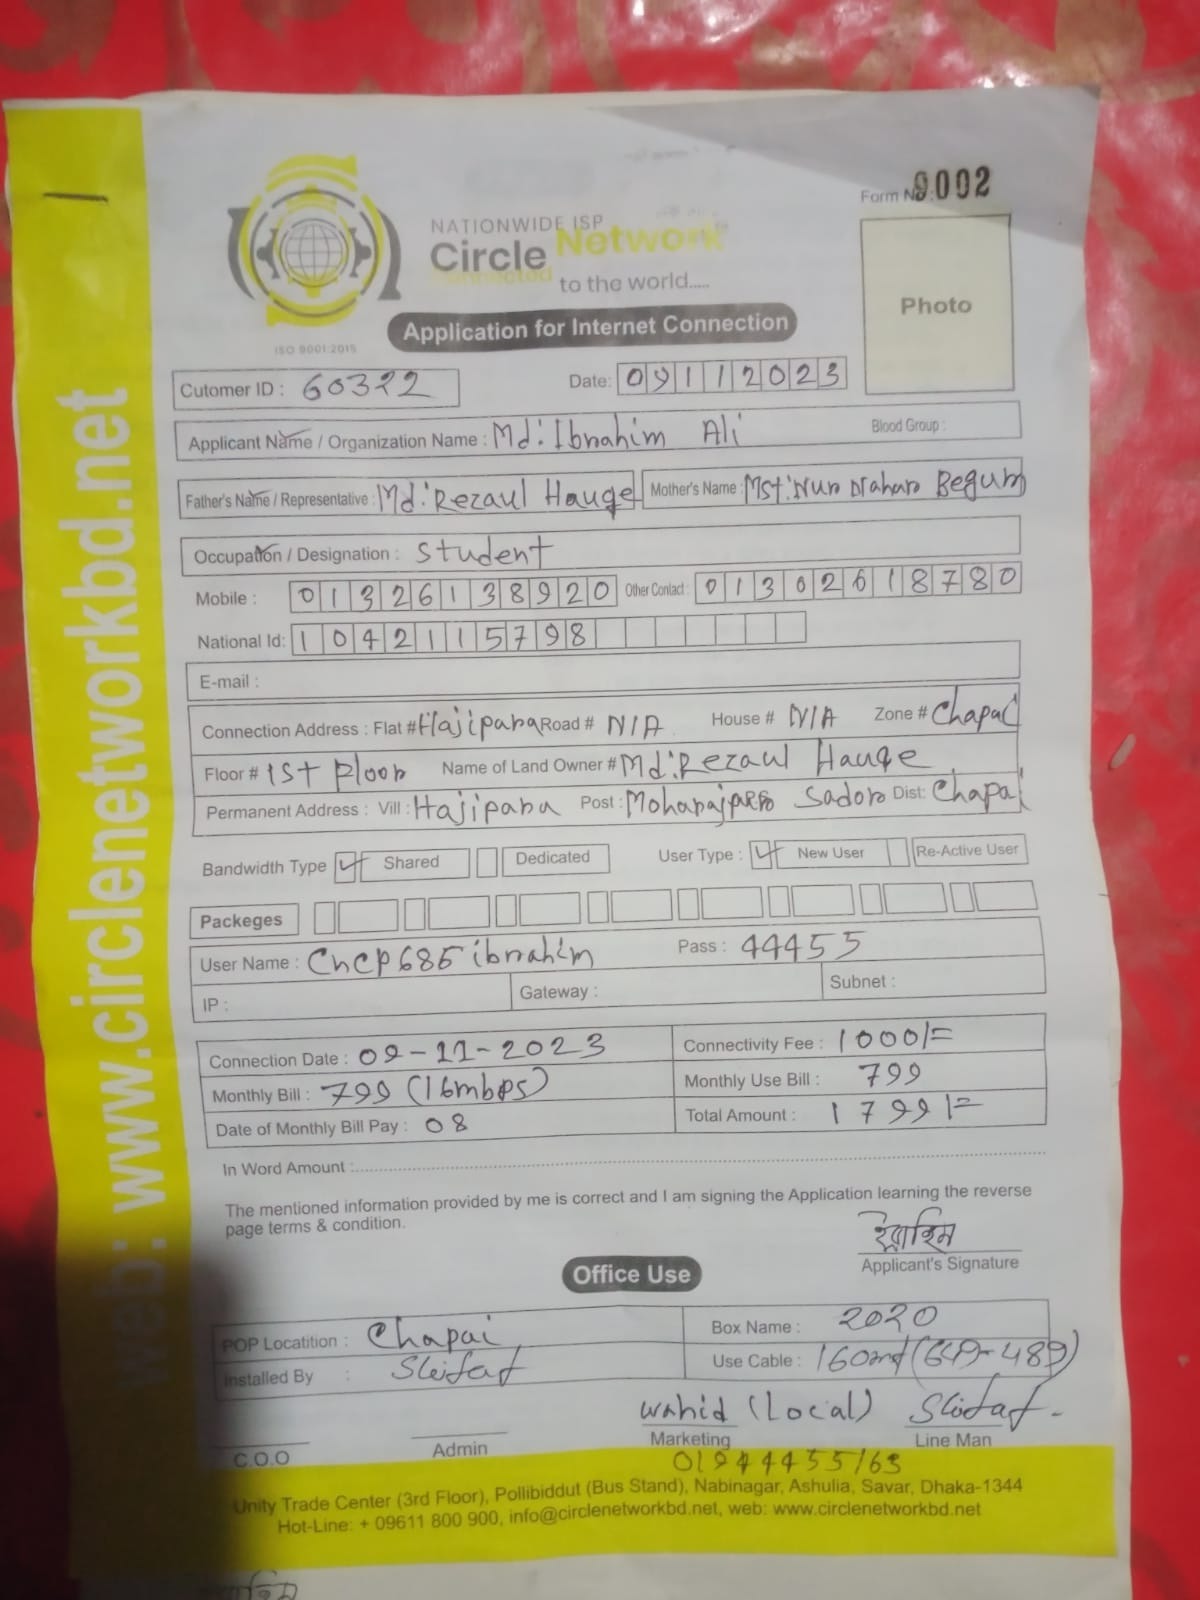 web: www.circlenetworkbd.net
Form No: 9002
NATIONWIDE ISP
Circle Network
Connected to the world.....
ISO 9001:2015
Application for Internet Connection
Photo
Cutomer ID : 60322
Date: 09112023
Applicant Name / Organization Name : Md: Ibrahim Ali Blood Group :
Father's Name / Representative : Md: Rezaul Hauqe Mother's Name : Mst: Nur Nahar Begum
Occupation / Designation : Student
Mobile : 01326138920 Other Contact : 01302618780
National Id: 1042115798
E-mail :
Connection Address : Flat # Hajipara Road # N/A House # N/A Zone # Chapai
Floor # 1st Floor Name of Land Owner # Md: Rezaul Hauqe
Permanent Address : Vill : Hajipara Post : Sador Dist: Chapai
Bandwidth Type Shared Dedicated User Type : New User Re-Active User
Packeges
User Name : Cncp685ibrahim Pass : 44455
IP : Gateway : Subnet :
Connection Date : 09-11-2023 Connectivity Fee : 1000/=
Monthly Bill : 799 (16mbps) Monthly Use Bill : 799
Date of Monthly Bill Pay : 08 Total Amount : 1799/=
In Word Amount :
The mentioned information provided by me is correct and I am signing the Application learning the reverse
page terms & condition.
ইব্রাহিম
Applicant's Signature
Office Use
POP Locatition : Chapai Box Name : 2020
Installed By : Use Cable :
wahid (Local)
C.O.O Admin Marketing Line Man
Unity Trade Center (3rd Floor), Pollibiddut (Bus Stand), Nabinagar, Ashulia, Savar, Dhaka-1344
Hot-Line: + 09611 800 900, info@circlenetworkbd.net, web: www.circlenetworkbd.net